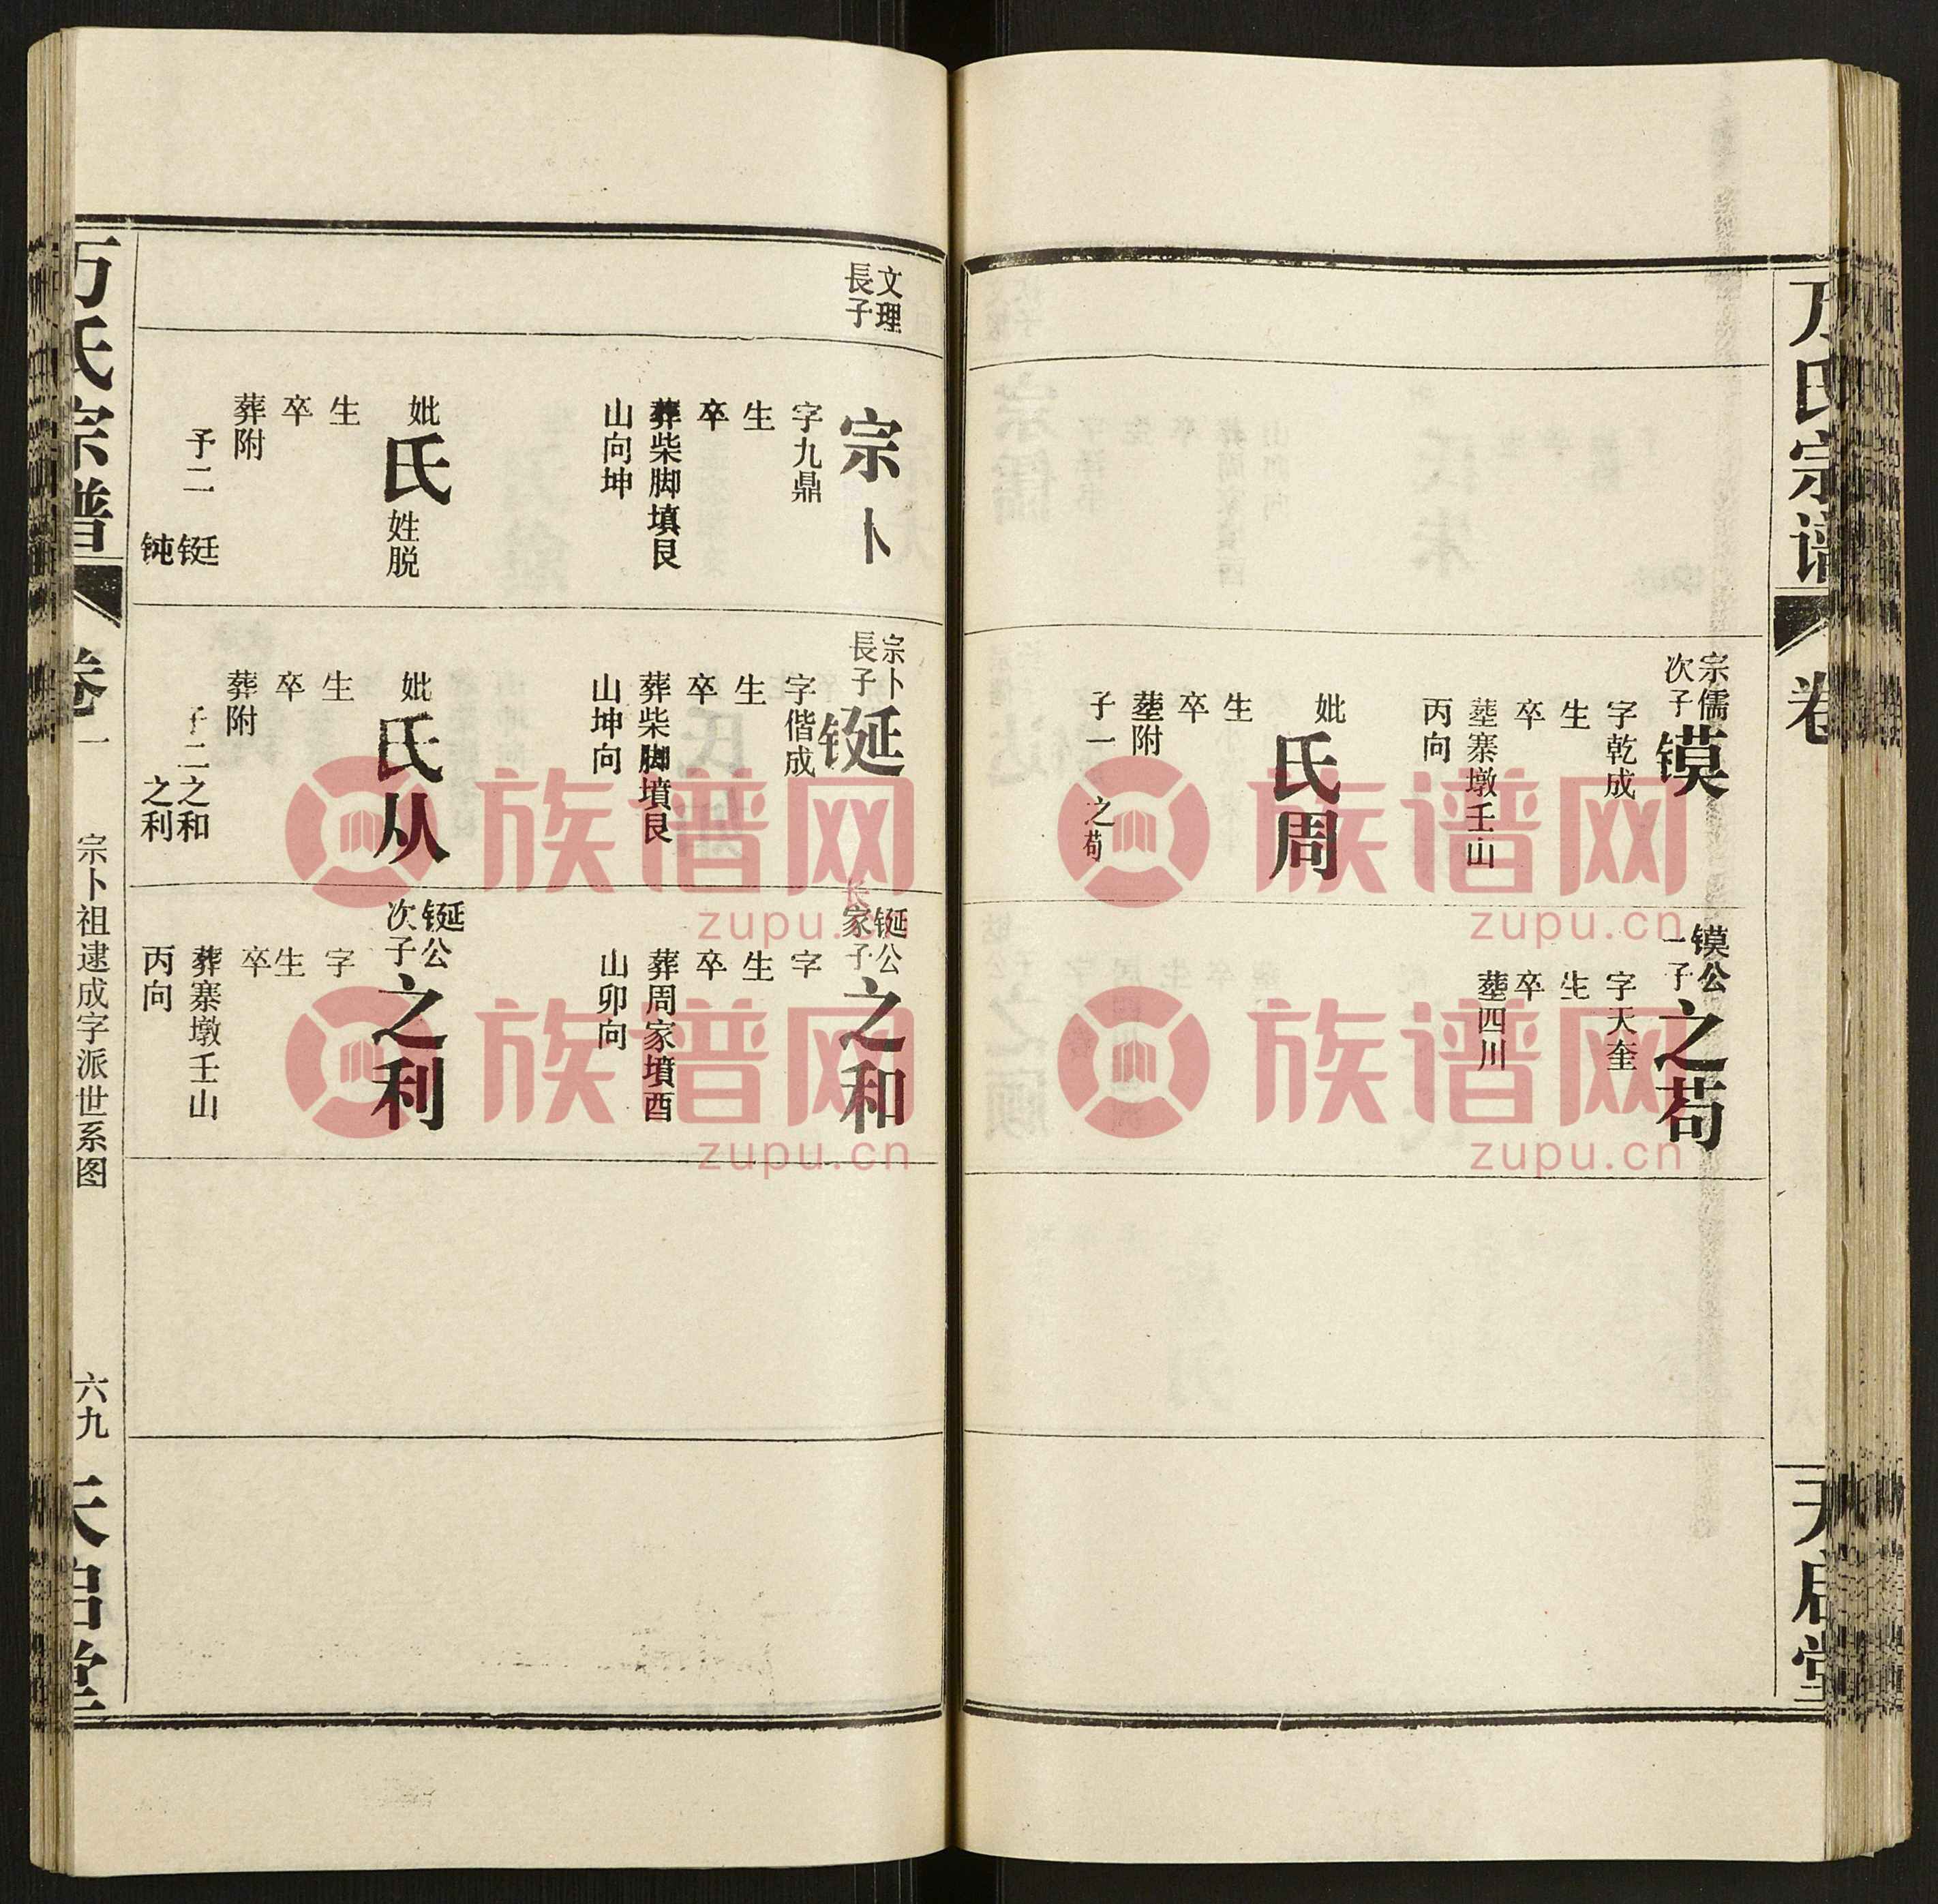 氏宗谱
卷
宗儒
次子
镆
字乾成
生
卒
塟寨墩壬山
丙向
妣
氏周
生
卒
塟附
子一
之苟
镆公
一子
之苟
字天奎
生
卒
塟四川
启堂
文理
長子
宗卜
字九鼎
生
卒
葬柴脚填艮
山向坤
妣
氏
姓脱
生
卒
葬附
予二
铤
钝
宗卜
長子
铤
字偕成
生
卒
葬柴脚墳艮
山坤向
妣
氏从
生
卒
葬附
子二
之和
之利
铤公
家子
长
之和
字
生
卒
葬周家墳酉
山卯向
铤公
次子
之利
字
生
卒
葬寨墩壬山
丙向
氏宗谱
卷一
宗卜祖逮成字派世系图
六九
天启堂
族谱网
zupu.cn
族谱网
zupu.cn
族谱网
zupu.cn
族谱网
zupu.cn